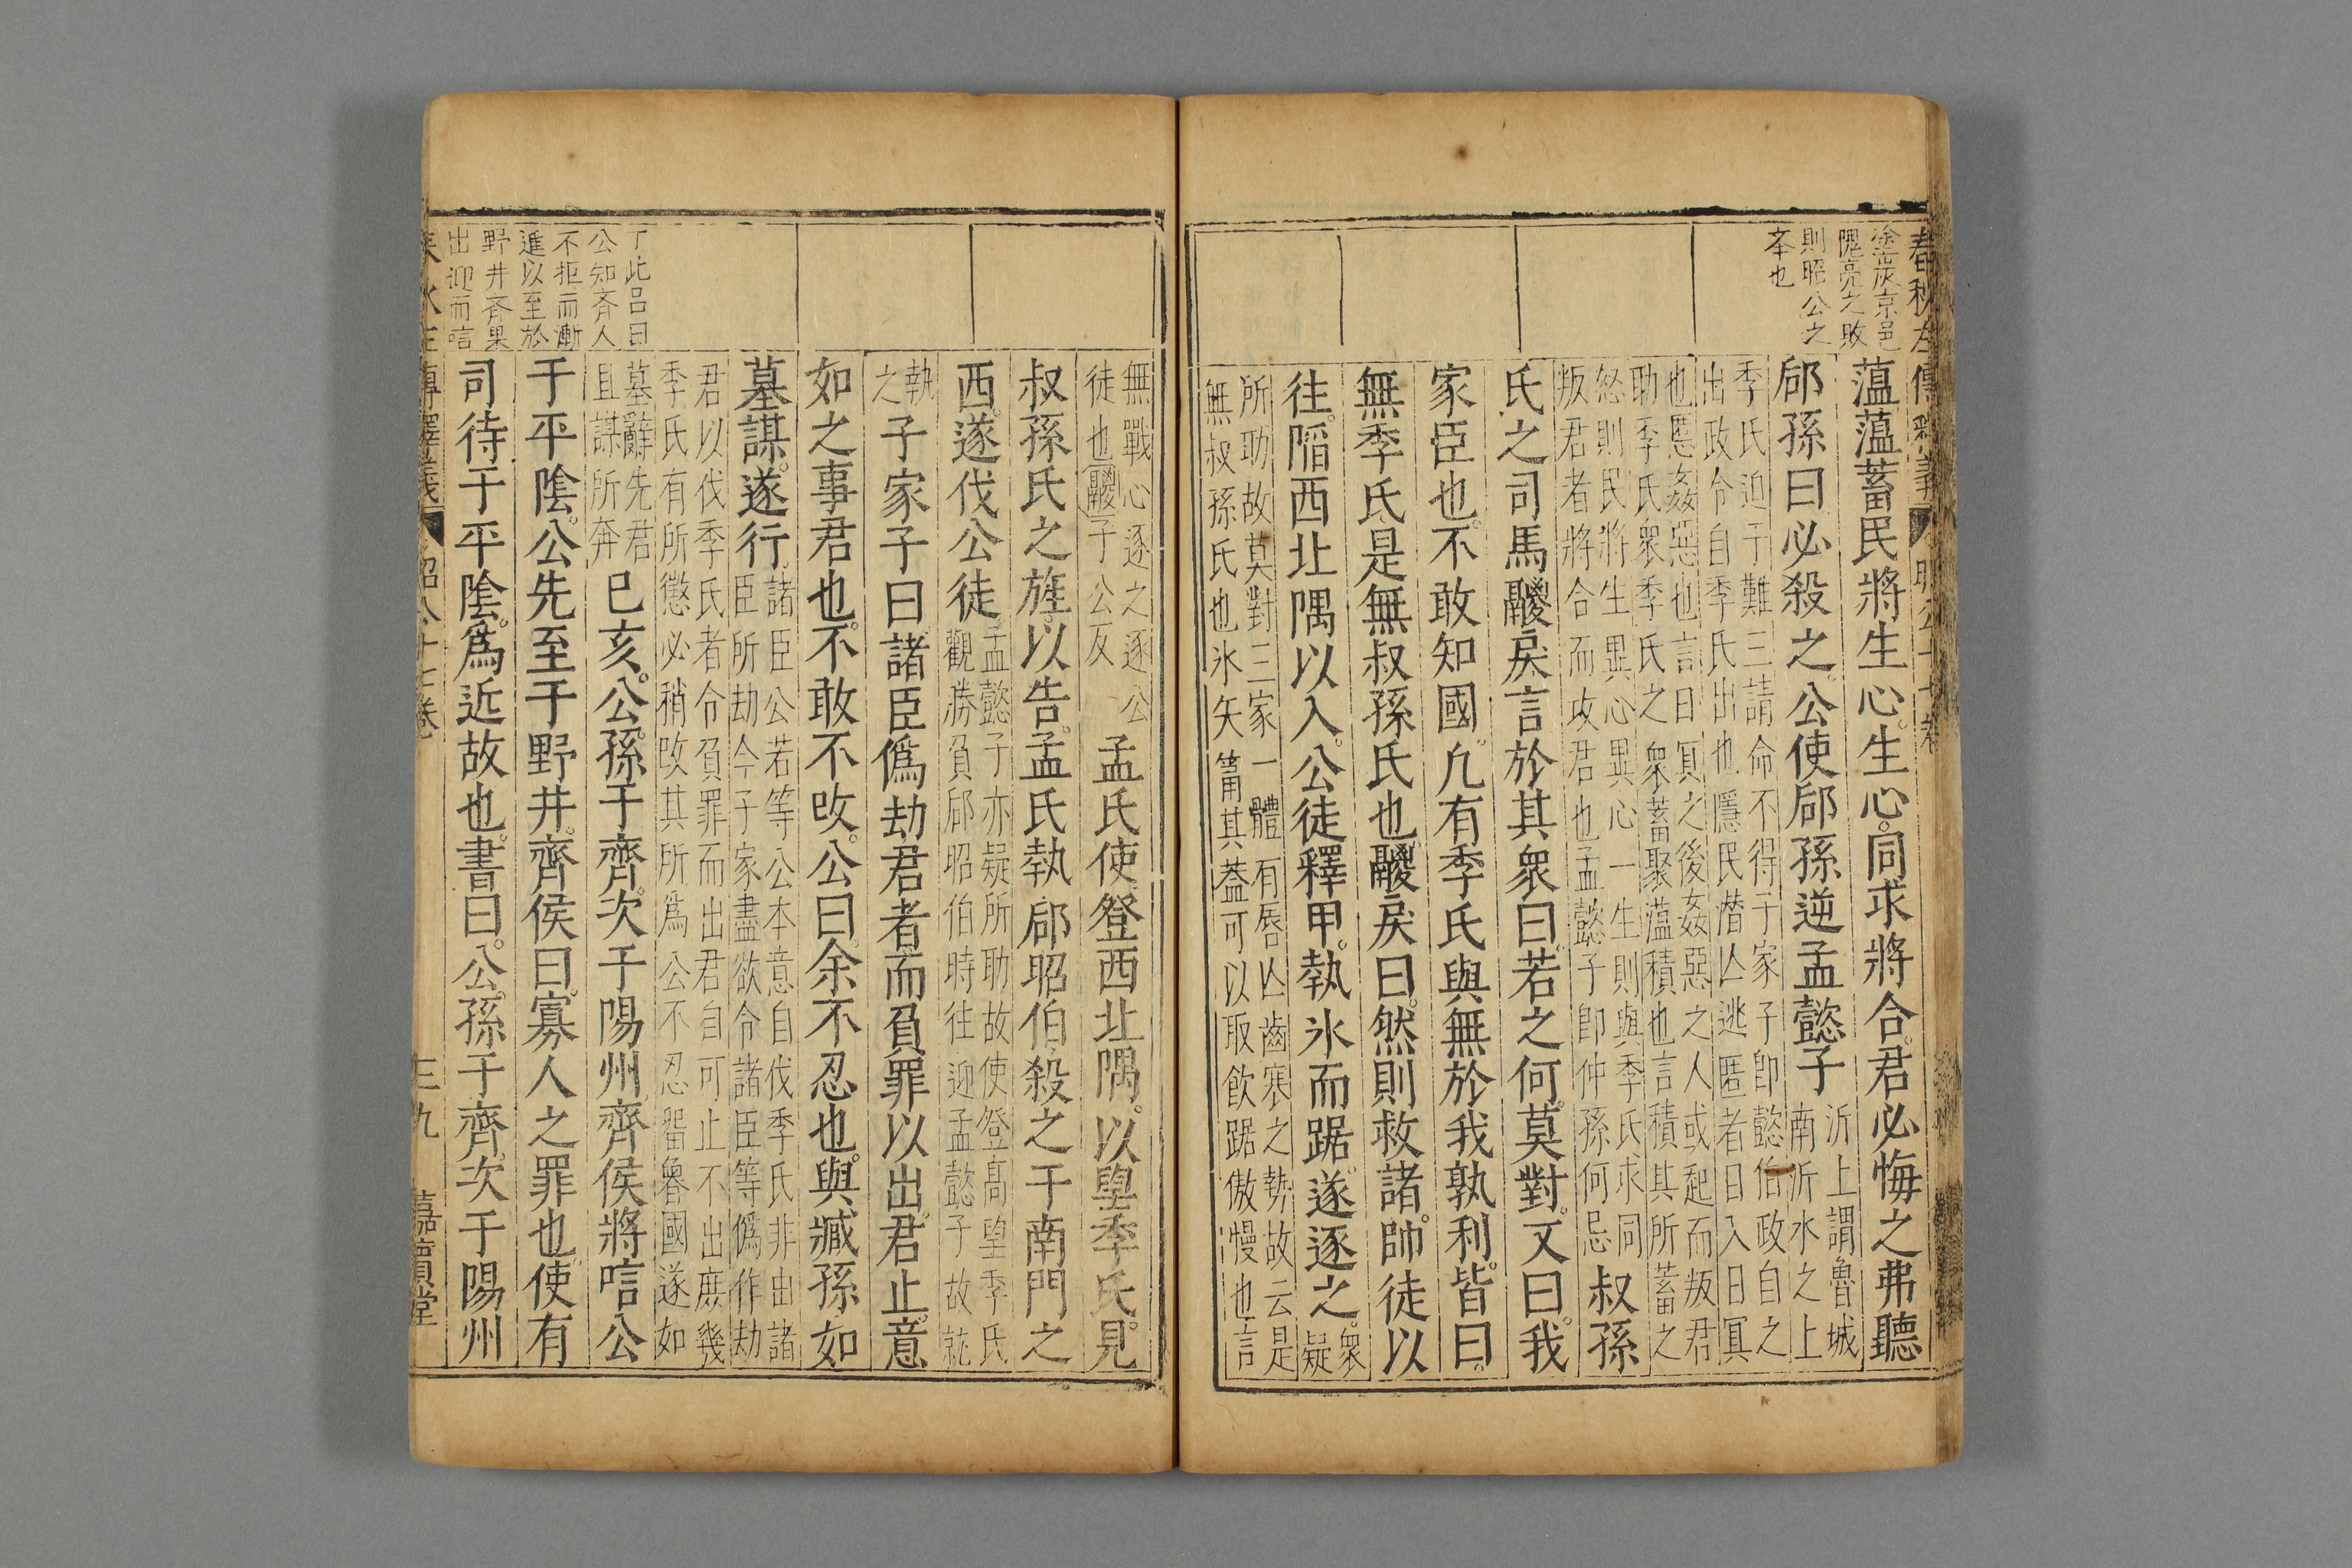 春秋左傳釋義
塗炭京邑
隗亮之敗
則昭公之
夲也
薀薀蓄民將生心。生心。同求將合。君必悔之弗聽
郈孫曰必殺之。公使郈孫逆孟懿子
沂上謂魯城
南沂水之上
季氏迎于難三請命不得于家子卽懿伯政自之
出政令自季氏出也隱民潛亾逃匿者日入日冥
也慝姦惡也言日冥之後姦惡之人或起而叛君
助季氏衆季氏之衆蓄聚薀積也言積其所蓄之
怒則民將生異心異心一生則與季氏求同
叛君者將合而攻君也孟懿子卽仲孫何忌
叔孫
氏之司馬鬷戾言於其衆曰。若之何。莫對。又曰。我
家臣也。不敢知國。凢有季氏與無於我孰利。皆曰。
無季氏是無叔孫氏也。鬷戾曰。然則救諸。帥徒以
往。陷西北隅以入。公徒釋甲。執氷而踞。遂逐之。
衆
疑
所助故莫對三家一體有唇亾齒寒之勢故云是
無叔孫氏也氷矢筩其葢可以取飲踞傲慢也言
無戰心逐之逐公
徒也鬷子公反
孟氏使登西北隅。以望季氏。見
叔孫氏之旌。以告。孟氏執郈昭伯殺之于南門之
西。遂伐公徒。
孟懿子亦疑所助故使登高望季氏
觀勝負郈昭伯時往迎孟懿子故就
執
之
子家子曰諸臣僞劫君者而負罪以出。君止。意
如之事君也。不敢不攺。公曰余不忍也。與臧孫如
墓謀。遂行。
諸臣公若等公本意自伐季氏非由諸
臣所劫今子家盡欲令諸臣等僞作劫
君以伐季氏者令負罪而出君自可止不出庶幾
季氏有所懲必稍攺其所爲公不忍畱魯國遂如
墓辭先君
且謀所奔
巳亥。公孫于齊。次于陽州。齊侯將唁公
于平陰。公先至于野井。齊侯曰。寡人之罪也。使有
司待于平陰。爲近故也。書曰。公孫于齊。次于陽州
丁此呂曰
公知齊人
不拒而漸
進以至於
野井齊果
出迎而唁
昭公十七卷
三九